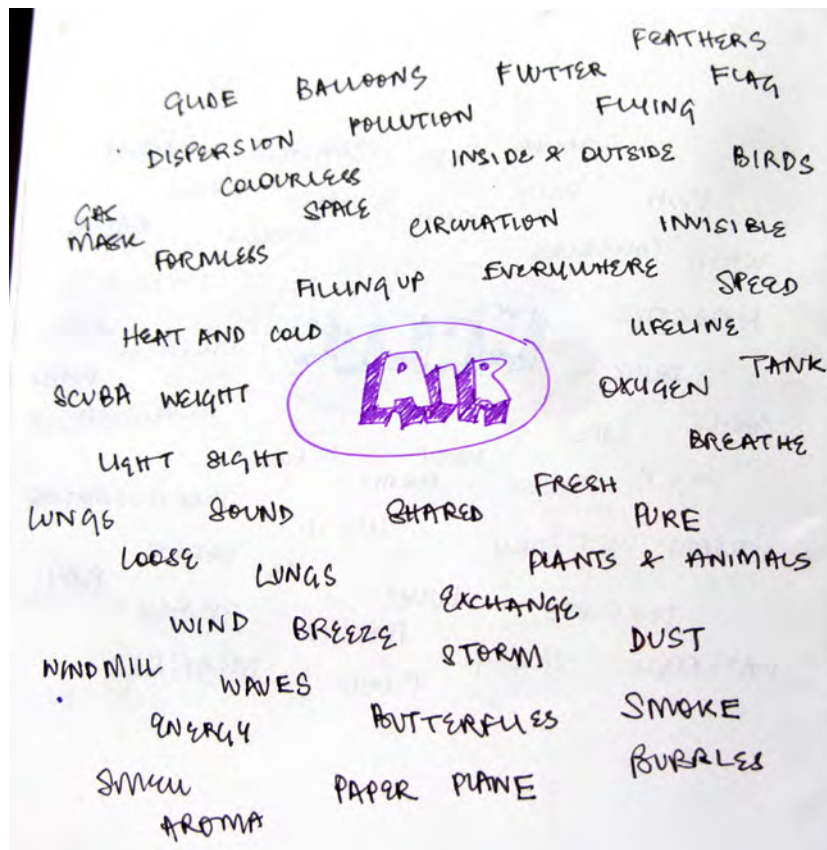 FEATHERS
GLIDE BALLOONS FLUTTER FLAG
DISPERSION POLLUTION FLYING
COLOURLESS INSIDE & OUTSIDE BIRDS
GAS MASK SPACE CIRCULATION INVISIBLE
FORMLESS
FILLING UP EVERYWHERE SPEED
HEAT AND COLD LIFELINE
AIR
SCUBA WEIGHT OXYGEN TANK
LIGHT SIGHT BREATHE
FRESH
LUNGS SOUND SHARED PURE
LOOSE LUNGS PLANTS & ANIMALS
EXCHANGE
WIND BREEZE STORM DUST
WINDMILL WAVES
ENERGY BUTTERFLIES SMOKE
SMELL PAPER PLANE BUBBLES
AROMA